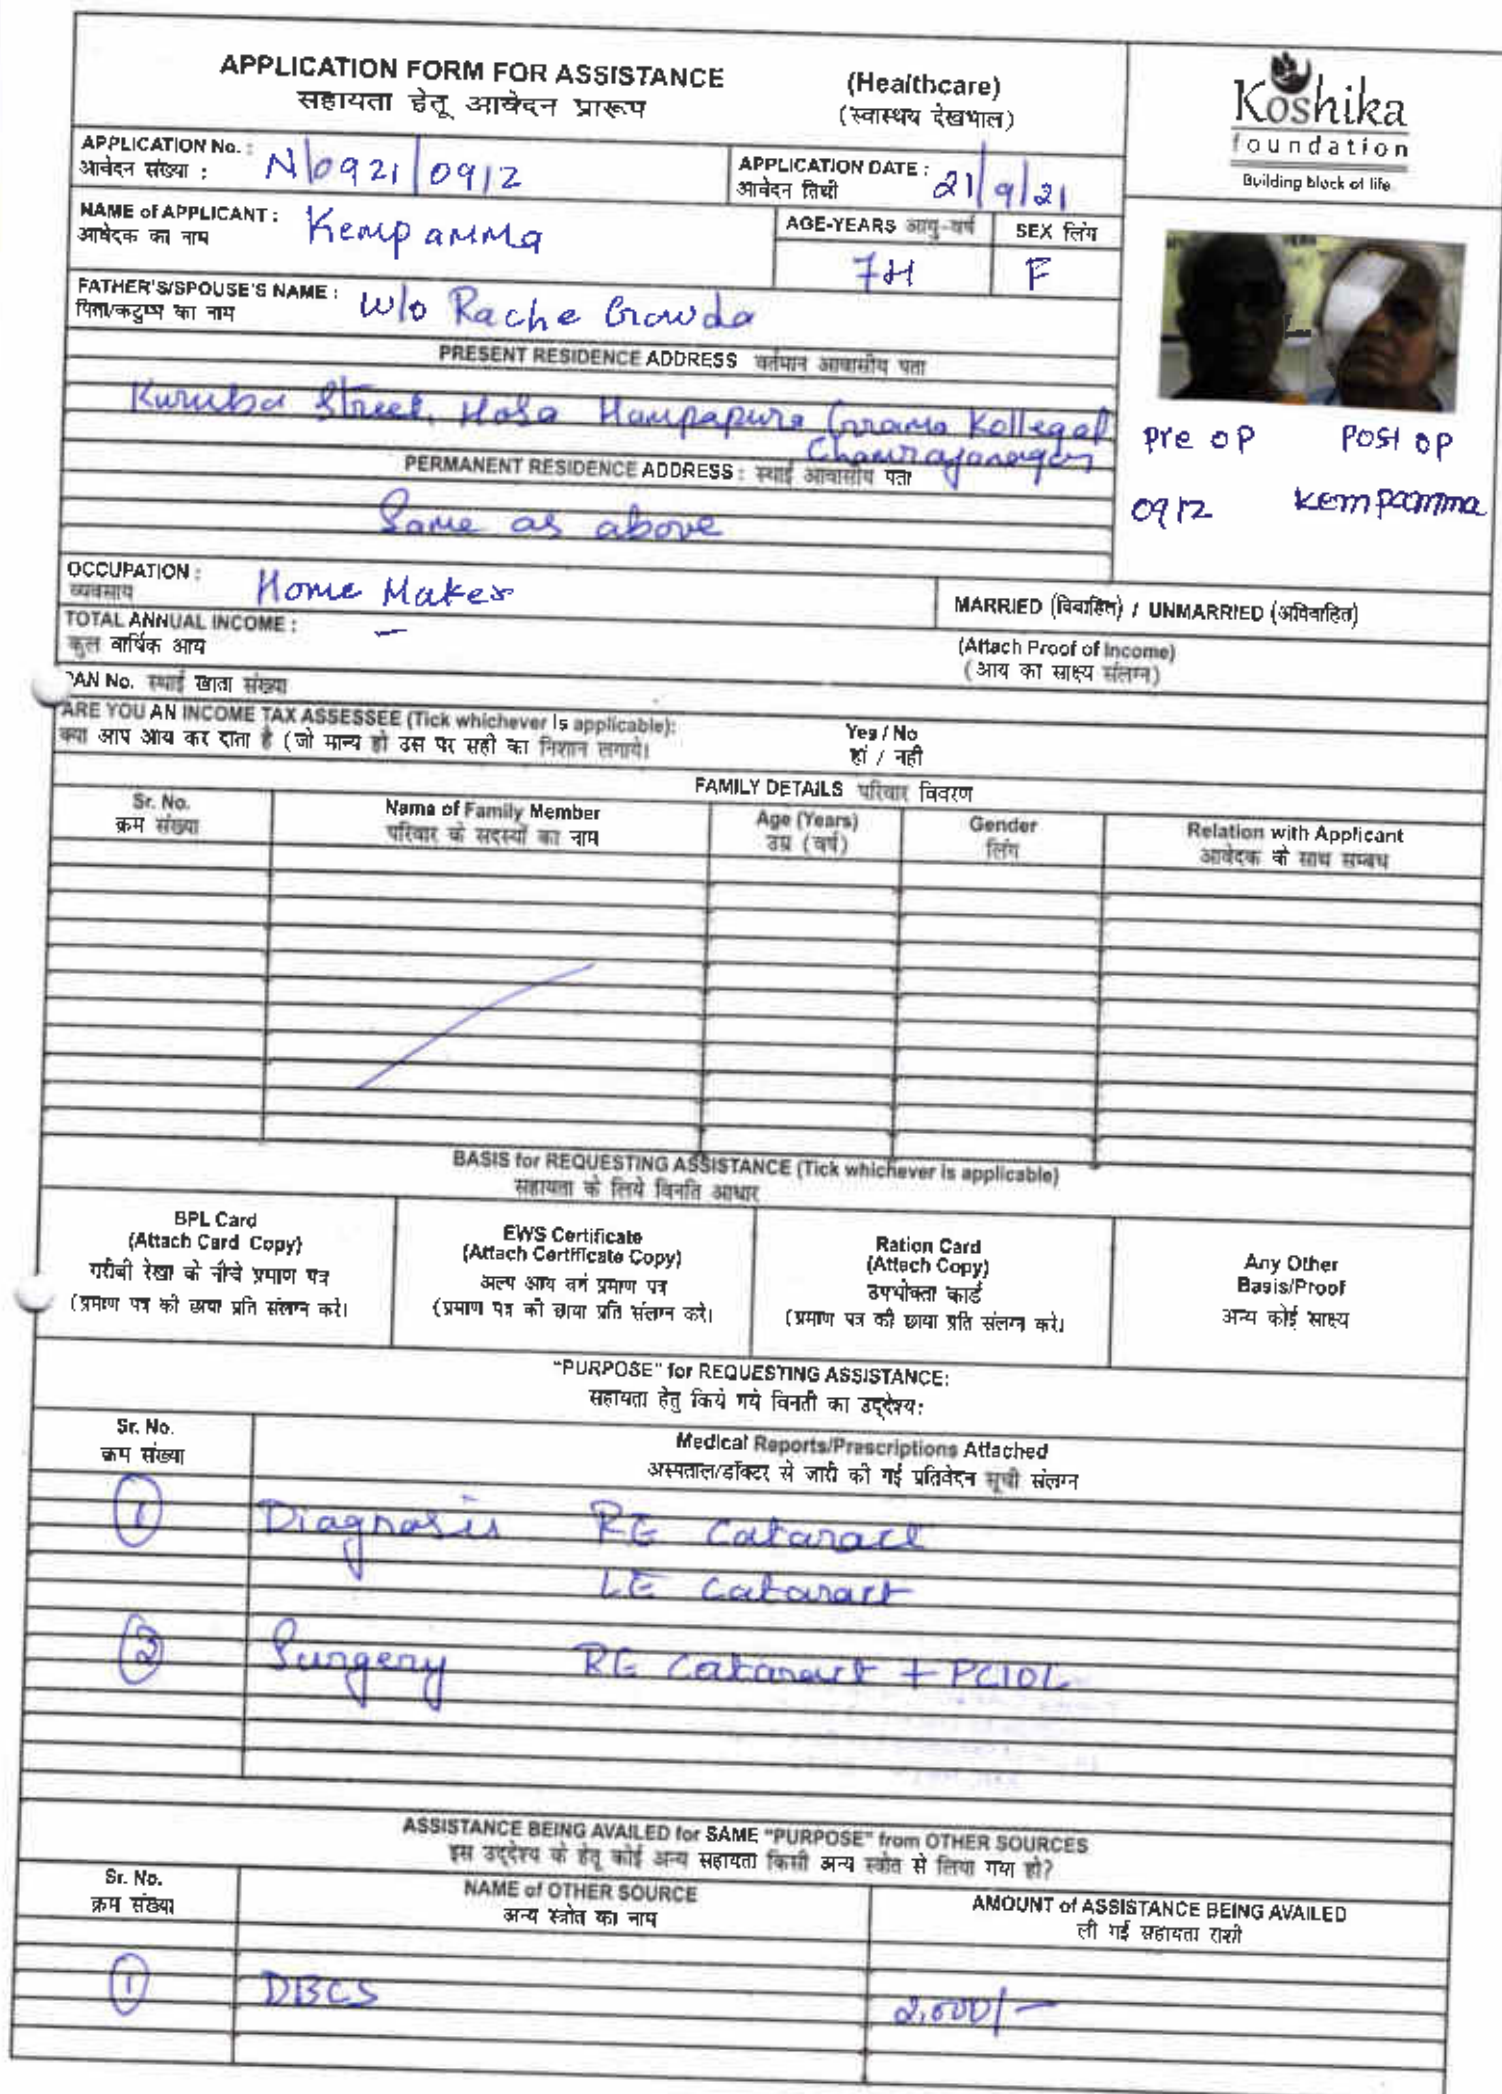 APPLICATION FORM FOR ASSISTANCE (Healthcare)
सहायता हेतू आवेदन प्रारूप (स्वास्थय देखभाल)
Koshika
foundation
Building block of life
APPLICATION No. : N/0921/0912
आवेदन संख्या :
APPLICATION DATE : 21/9/21
आवेदन तिथी
NAME of APPLICANT : Kempamma
आवेदक का नाम
AGE-YEARS आयु-वर्ष
SEX लिंग
F
FATHER'S/SPOUSE'S NAME : W/o Rache Gowda
पिता/कटुम्ब का नाम
PRESENT RESIDENCE ADDRESS वर्तमान आवासीय पता
Kuruba Street, Hosa Hampapura Grama Kollegal
Chamrajanagar
PERMANENT RESIDENCE ADDRESS : स्थाई आवासीय पता
Same as above
Pre OP Post OP
0912 Kempamma
OCCUPATION : Home Maker
व्यवसाय
MARRIED (विवाहित) / UNMARRIED (अविवाहित)
TOTAL ANNUAL INCOME : –
कुल वार्षिक आय
(Attach Proof of Income)
(आय का साक्ष्य संलग्न)
PAN No. स्थाई खाता संख्या
ARE YOU AN INCOME TAX ASSESSEE (Tick whichever is applicable): Yes / No
क्या आप आय कर दाता है (जो मान्य हो उस पर सही का निशान लगाये। हां / नही
FAMILY DETAILS परिवार विवरण
Sr. No. Name of Family Member Age (Years) Gender Relation with Applicant
क्रम संख्या परिवार के सदस्यों का नाम उम्र (वर्ष) लिंग आवेदक के साथ सम्बध
BASIS for REQUESTING ASSISTANCE (Tick whichever is applicable)
सहायता के लिये विनति आधार
BPL Card
(Attach Card Copy)
गरीबी रेखा के नीचे प्रमाण पत्र
(प्रमाण पत्र की छाया प्रति संलग्न करे।
EWS Certificate
(Attach Certificate Copy)
अल्प आय वर्ग प्रमाण पत्र
(प्रमाण पत्र की छाया प्रति संलग्न करे।
Ration Card
(Attach Copy)
उपभोक्ता कार्ड
(प्रमाण पत्र की छाया प्रति संलग्न करे।
Any Other
Basis/Proof
अन्य कोई साक्ष्य
"PURPOSE" for REQUESTING ASSISTANCE:
सहायता हेतु किये गये विनती का उद्देश्य:
Sr. No. Medical Reports/Prescriptions Attached
क्रम संख्या अस्पताल/डॉक्टर से जारी की गई प्रतिवेदन सूची संलग्न
1 Diagnosis RE Cataract
LE Cataract
2 Surgery RE Cataract + PCIOL
ASSISTANCE BEING AVAILED for SAME "PURPOSE" from OTHER SOURCES
इस उद्देश्य के हेतू कोई अन्य सहायता किसी अन्य स्त्रोत से लिया गया हो?
Sr. No. NAME of OTHER SOURCE AMOUNT of ASSISTANCE BEING AVAILED
क्रम संख्या अन्य स्त्रोत का नाम ली गई सहायता राशी
1 DBCS 2,000/-